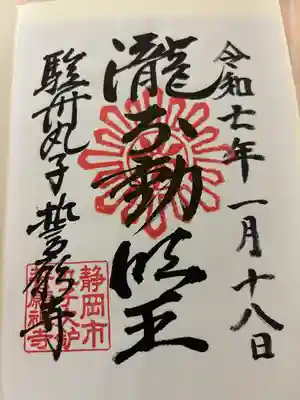 令和七年一月十八日
瀧不動明王
駿州丸子誓願寺
静岡市
丸子大炉
誓願禅寺